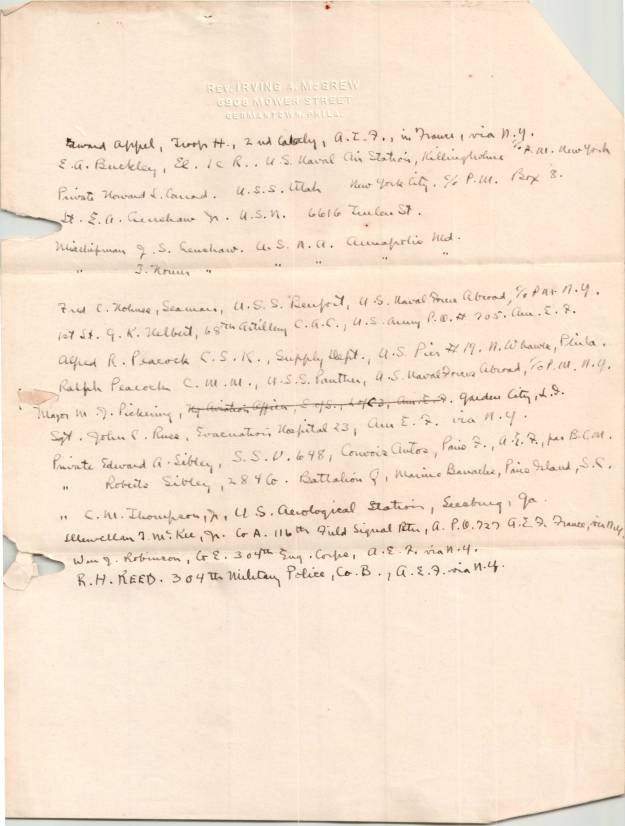 REV. IRVING A. McGREW
6908 MOWER STREET
GERMANTOWN, PHILA.
Edward Appel, Troop H., 2nd Cavalry, A.E.F., in France, via N.Y.
E. A. Buckley, El. 1 C R.. U.S. Naval Air Station, Killingholme c/o P.M. New York
Private Howard L. Conrad. U.S.S. Utah New York City. c/o P.M. Box 8.
Lt. E. A. Crenshaw Jr. U.S.N. 6616 St.
Midshipman J. S. Crenshaw. U.S.N.A. Annapolis Md.
" J. " " " " "
Fred C. Holmes, Seaman, U.S.S. Benfort, U.S. Naval Forces Abroad, c/o P.M. N.Y.
1st Lt. G. K. Helbert, 68th Artillery C.A.C., U.S. Army P.O. # 705. Am. E. F.
Alfred R. Peacock C.S.K., Supply Dept., U.S. Pier # 19. N. Wharves, Phila.
Ralph Peacock C.M.M., U.S.S. Panther, U.S. Naval Forces Abroad, c/o P.M. N.Y.
Major M. J. Pickering, Garden City, L.I.
Sgt. John C. Russ, Evacuation Hospital 23, Am E. F. via N.Y.
Private Edward A. Sibley, S.S.U. 648, Convois Autos, Paris F., A.E.F., par B.C.M.
" Roberts Sibley, 284 Co. Battalion Q, Marine Barracks, Paris Island, S.C.
" C. M. Thompson, Jr, U.S. Aerological Station, Leesburg, Ga.
Llewellan T. McKee, Jr. Co A. 116th Field Signal Btn, A.P.O. 727 A.E.F. France, via N.Y.
Wm J. Robinson, Co E. 304th Eng. Corps, A.E.F. via N.Y.
R.H. REED. 304th Military Police, Co. B., A.E.F. via N.Y.